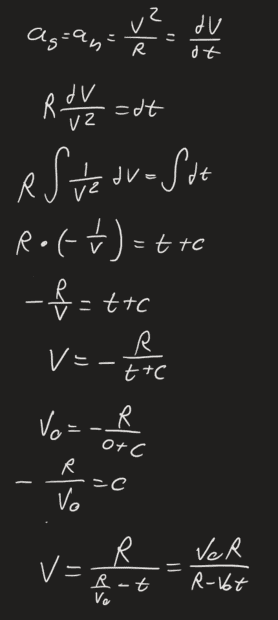 a_s = a_n = V²/R = dV/dt
R dV/V² = dt
R ∫ 1/V² dV = ∫ dt
R • (- 1/V) = t + c
- R/V = t + c
V = - R/(t + c)
V₀ = - R/(0 + C)
- R/V₀ = c
V = R/(R/V₀ - t) = V₀R/(R - V₀t)